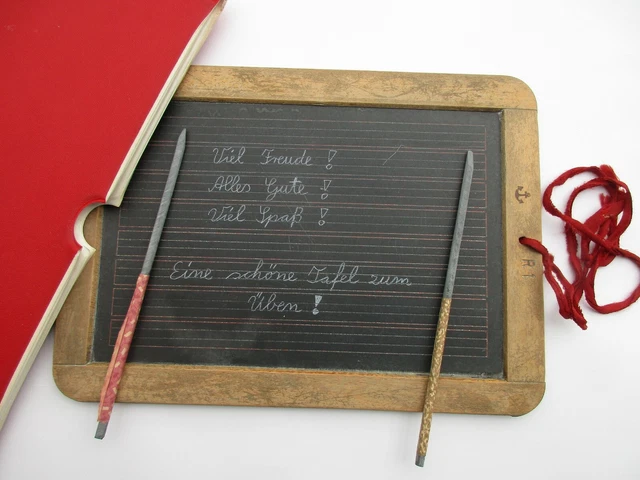 Viel Freude !
Alles Gute !
Viel Spaß !
Eine schöne Tafel zum
Üben !
R 1